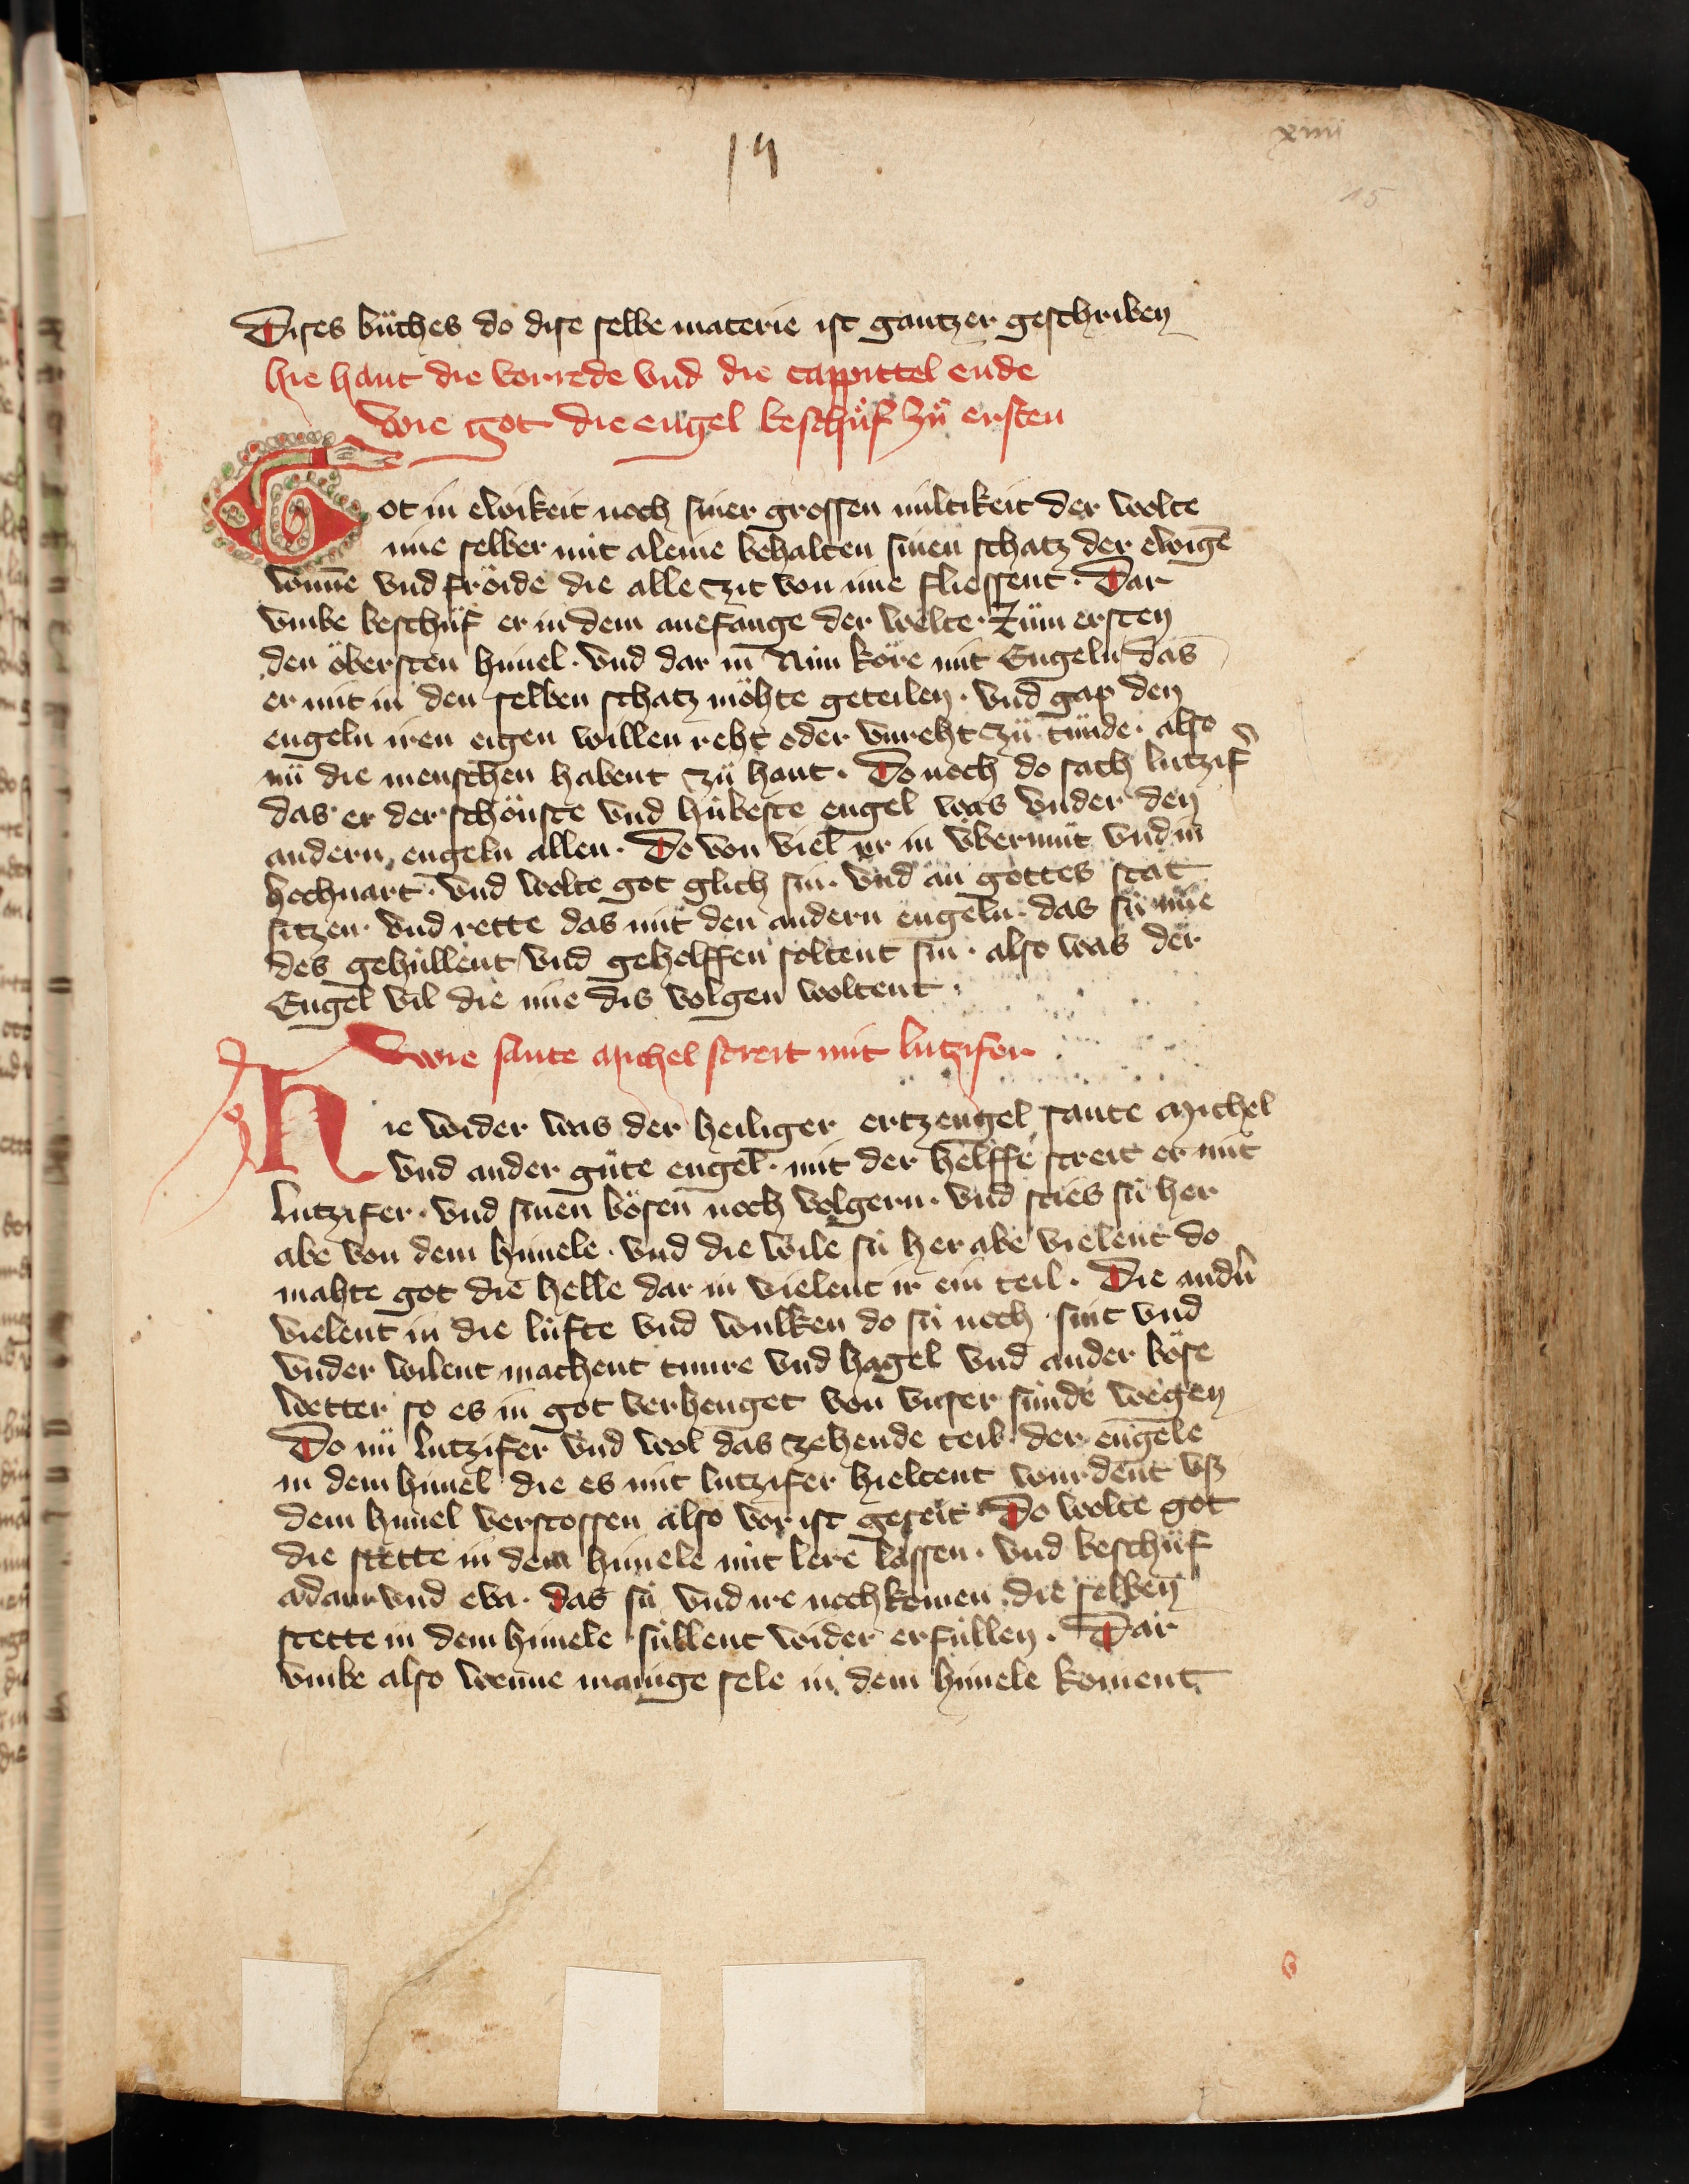 xiiii
14
15
Dises bůches do dise selbe materie ist gantzer geschriben
hie hant die vorrede vnd die cappittel ende
wie got die engel beschůf zů ersten
Got in ewikeit noch siner grossen miltikeit der wolte
ime selber nüt aleine behalten sinen schatz der ewigē
wunne vnd fröide die alle zit von ime fliessent · Dar
vmbe beschůf er in dem anefange der welte · Zům ersten
den öbersten himel · vnd dar in Nün köre mit Engeln das
er mit in den selben schatz möhte geteilen · vnd gap den
engeln iren eigen willen reht oder vnreht zů tůnde · also
nů die menschen habent zů hant · Do noch do sach lutzif̄
das er der schönste vnd hübeste engel was vnder den
andern engeln allen · Do von viel er in vbermůt vnd in
hochuart · vnd wolte got glich sin · vnd an gottes stat
sitzen · vnd rette das mit den andern engeln · das sü ime
des gehüllent vnd gehelffen soltent sin · also was der
Engel vil die ime dis volgen woltent ·
wie sante michel streit mit lutzifer
Hie wider was der heiliger ertzengel sante michel
vnd ander gůte engel · mit der helffe streit er mit
lutzifer · vnd sinen bösen noch volgern · vnd sties sü her
abe von dem himele · vnd die wile sü her abe vielent do
mahte got die helle dar in vielent ir ein teil · Die andn̄
vielent in die lüfte vnd wulken do sü noch sint vnd
vnder wilent machent tunre vnd hagel vnd ander böse
wetter so es in got verhenget von vnser sünde wegen
Do nů lutzifer vnd wol das zehende teil der engele
in dem himel die es mit lutzifer hieltent wurdent vſz
dem himel verstossen also vor ist geseit Do wolte got
die stette in dem himele nüt lere lassen · vnd beschůf
adam vnd eva · das sü vnd ire nochkomen die selben
stette in dem himele süllent wider erfüllen · Dar
vmbe also wenne manige sele in dem himele koment